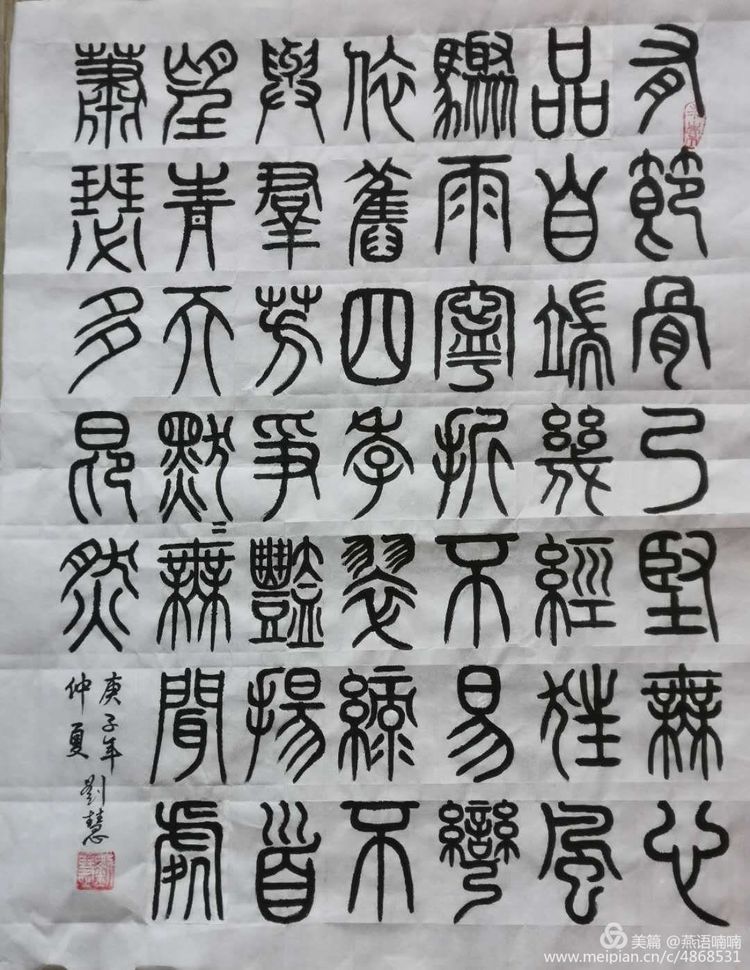 有節骨乃堅無心
品自端幾經狂風
驟雨寧折不易彎
依舊四季翠綠不
與羣芳爭豔揚首
望青天默〻無聞處
蕭瑟多昂然
庚子年
仲夏
劉慧
美篇 @燕语喃喃
www.meipian.cn/c/4868531